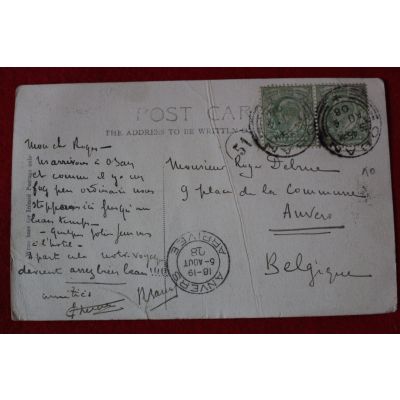 POST CARD
THE ADDRESS TO BE WRITTEN
Mon cher Roger
Nous arrivons à Oban
et comme il y a un
fog peu ordinaire nous
stopperons ici jusqu'au
beau temps -
- Quelques jolies
à l'hotel -
à part cela notre voyage
devient assez bien beau !!!
amitiés
Monsieur Roger Delrue
9 place de la Commune
Anvers
Belgique
OBAN
AU 4
08
51
ANVERS
18-19
6-AOUT
08
ARRIVEE